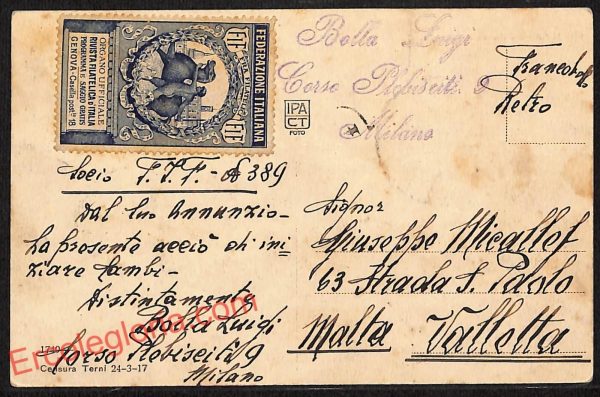 FEDERAZIONE ITALIANA
FTF
FTF
ORGANO UFFICIALE
RIVISTA FILATELICA D'ITALIA
PROGRAMMA E SAGGIO GRATIS
GENOVA - Casella post. 18
Bolla Luigi
Corso Plebisciti 9
Milano
Francobollo
Retro
IPA
CT
FOTO
Socio F.T.F. - A 389
Dal Suo Annunzio -
La presente acciò di ini=
ziare cambi -
Distintamente
Bolla Luigi
Corso Plebisciti 9
Milano
Signor
Giuseppe Micallef
63 Strada S. Paolo
Malta Valletta
Censura Terni 24-3-17